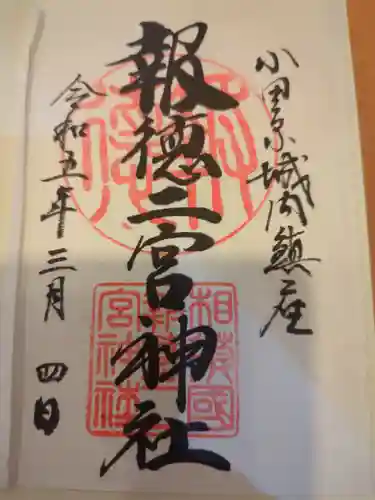 小田原城内鎮座
報徳二宮神社
令和五年三月四日
相模國
報徳二
宮神社